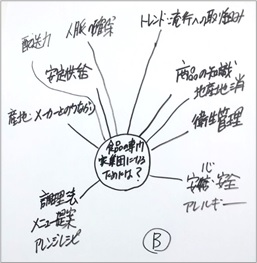 配送力
人脈の確保
トレンド:流行への取り組み
安定供給
商品の知識
地産地消
産地:メーカーとのつながり
衛生管理
食品の専門
家集団になる
ためには?
心
安心・安全
アレルギー
調理法
メニュー提案
アレンジレシピ
B